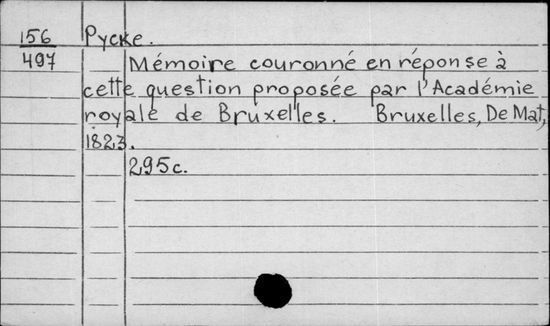 156 Pycke.
497 Mémoire couronné en réponse à
cette question proposée par l'Académie
royale de Bruxelles. Bruxelles, De Mat,
1823.
295c.